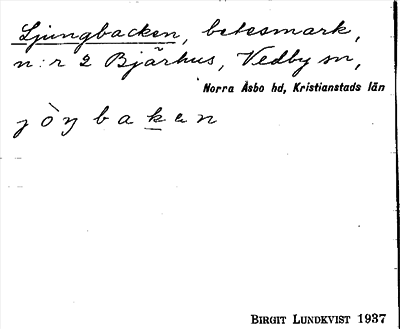 Ljungbacken, betesmark,
n:r 2 Bjärhus, Vedby sn,
Norra Åsbo hd, Kristianstads län
jòŋbakan
BIRGIT LUNDKVIST 1937